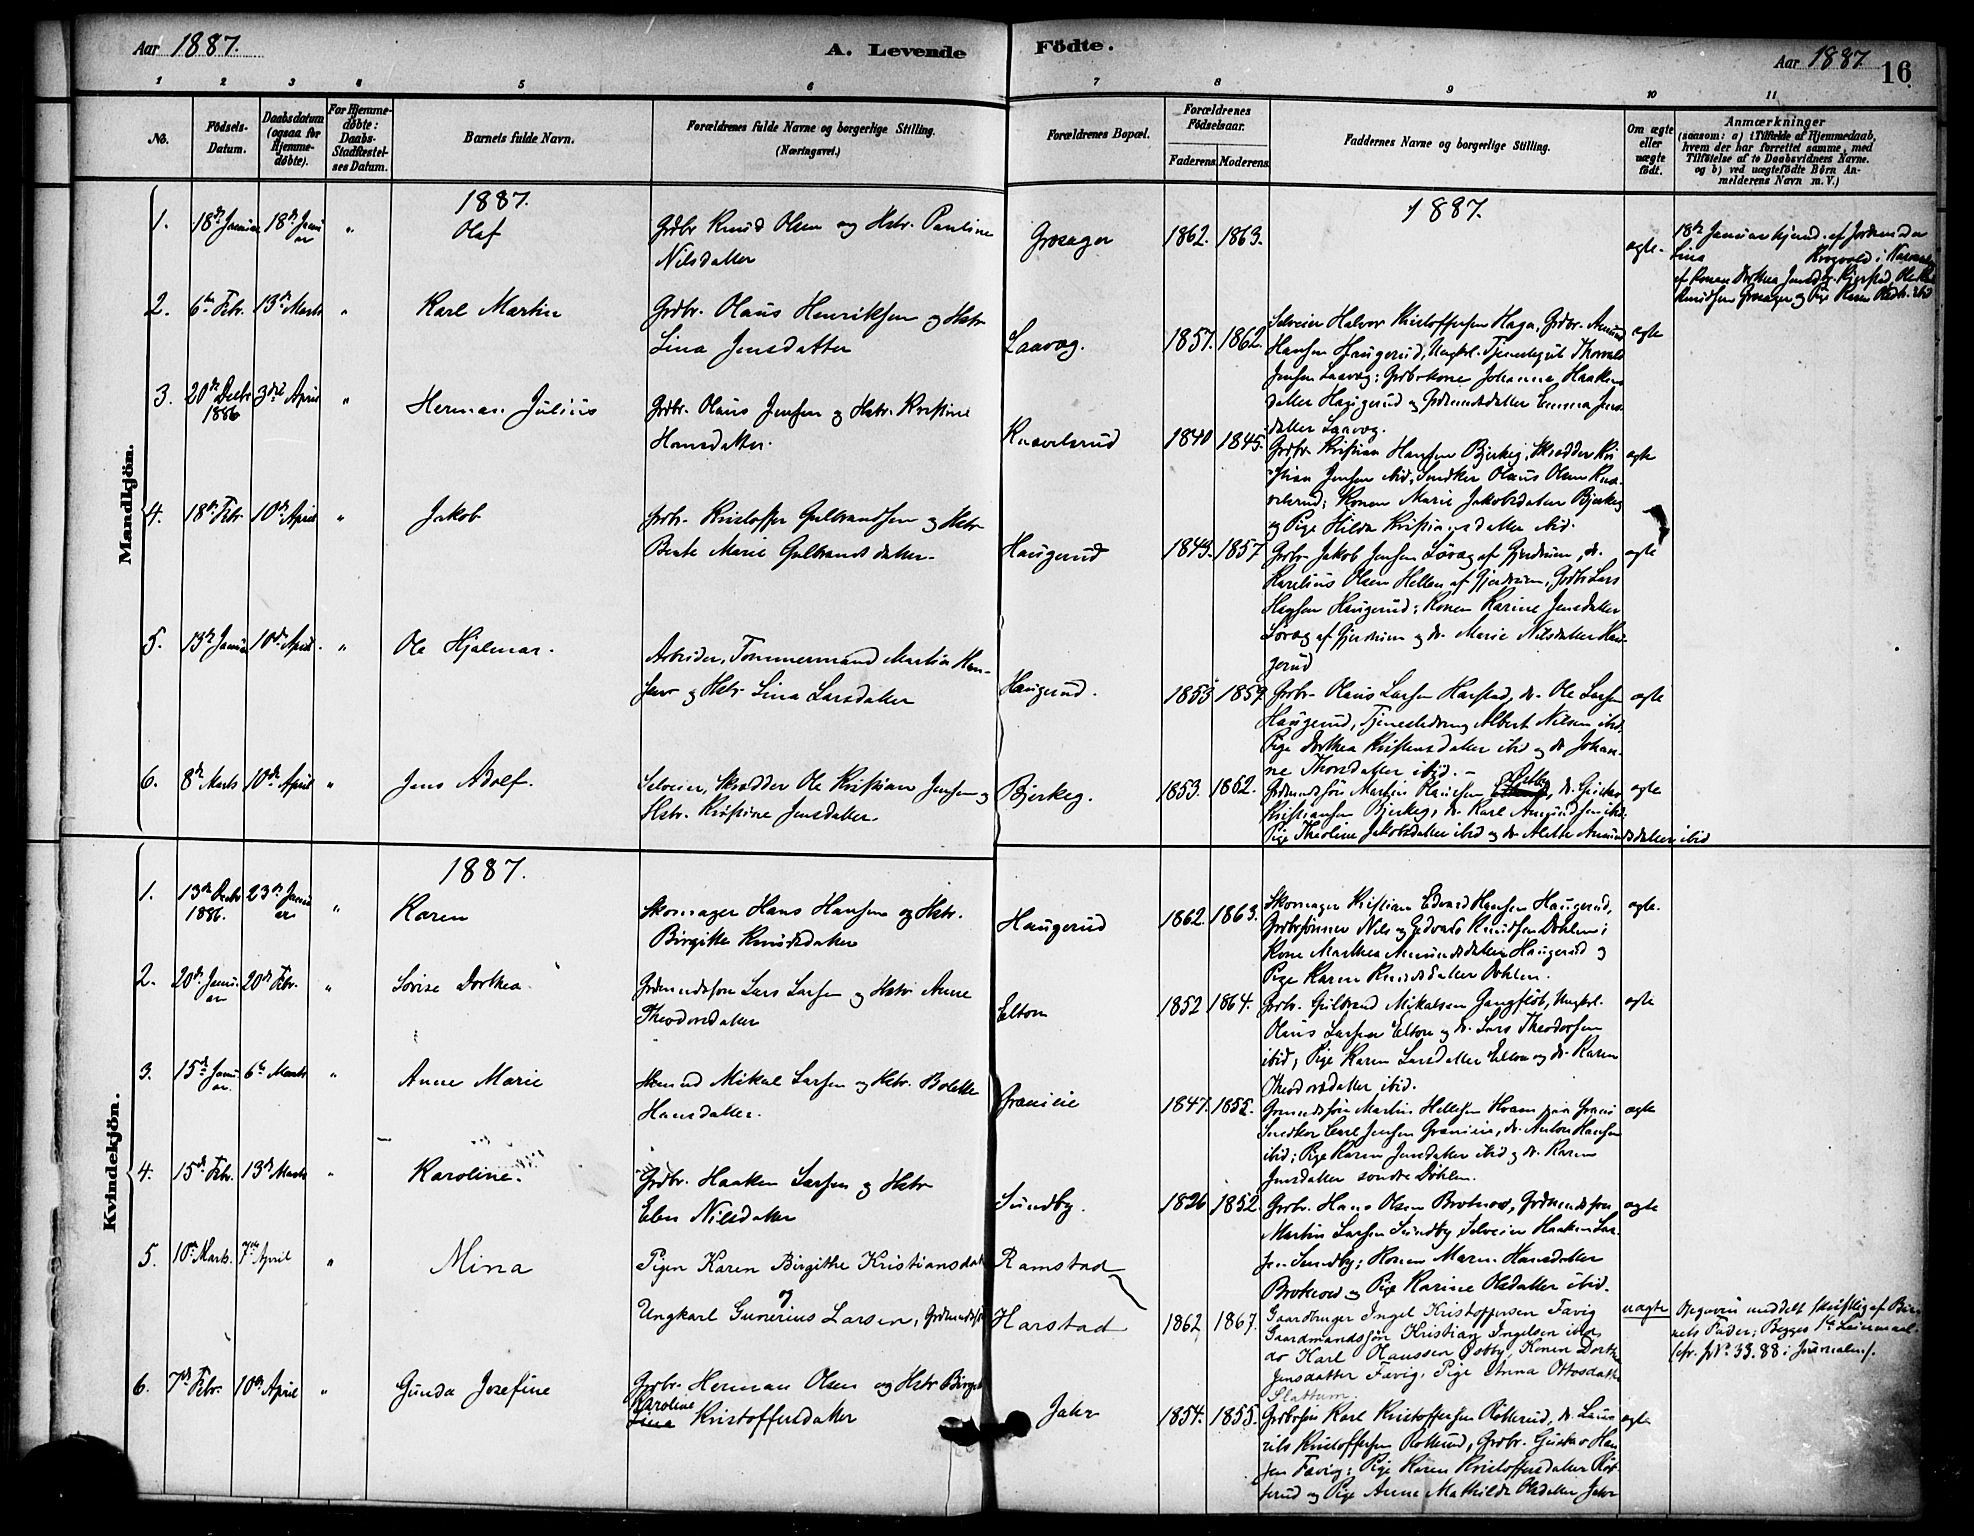 Aar 1887.
A. Levende Födte.
Aar 1887
16.
1 2 3 4 5 6 7 8 9 10 11
No.
Födsels-Datum.
Daabsdatum (ogsaa for Hjemme-döbte).
For Hjemme-döbte: Daabs-Stadfæstel-ses Datum.
Barnets fulde Navn.
Forældrenes fulde Navne og borgerlige Stilling.
(Næringsvei.)
Forældrenes Bopæl.
Forældrenes Födselsaar.
Faderens. Moderens.
Faddernes Navne og borgerlige Stilling.
Om ægte eller uægte födt.
Anmærkninger
(saasom: a) i Tilfælde af Hjemmedaab,
hvem der har forrettet samme, med
Tilföielse af to Daabsvidners Navne.
og b) ved uægtefödte Börn An-
melderens Navn m. V.)
Mandkjön.
1887.
1887.
1. 18de Januar 18de Janu
ar " Olaf
Grdbr Knud Olsen og Hstr. Pauline
Nilsdatter
Grosager 1862. 1863.
ægte.
18de Januar hjemd. af Jordemoder
Lina
2. 6te Febr. 13de Marts " Karl Martin
Grdbr. Olaus Henriksen og Hstr
Lina Jensdatter
Laavag. 1857. 1862.
Selveier Halvor Kristoffersen Haga, Grdbr. Amund
Hansen Haugerud, Ungkl. Tjenestegut Thorvald
Jensen Laavag; Grdbrkone Johanne Haakens
datter Haugerud og Grdmandsdatter Emma Jens
datter Laavag.
ægte
3. 20de Decbr 1886 3die April " Herman Julius
Grdbr. Olaus Jensen og Hstr. Kristine
Hansdatter.
Knavelsrud 1840 1845.
Grdbr. Kristian Hansen Bjerkeg, Skrædder Kri
stian Jensen ibid, Snedker Olaus Olsen Kna
velsrud; Konen Marie Jakobsdatter Bjerkeg
og Pige Hilda Kristiansdatter ibid.
ægte
4. 18de Febr. 10de April " Jakob
Grdbr. Kristoffer Gulbrandsen og Hstr
Beate Marie Gulbrandsdatter.
Haugerud 1843. 1857
Grdbr. Jakob Jensen Lövag af Gjerdrum, do.
Karelius Olsen Hellen af Gjerdrum, Grdbr Lars
Hansen Haugerud; Konen Karine Jensdatter
Lövag af Gjerdrum og do. Marie Nilsdatter Hau
gerud
ægte
5. 13de Januar 10de April. " Ole Hjalmar.
Arbeider, Tømmermand Martin Han-
sen og Hstr Lina Larsdatter
Haugerud. 1853 1859
Grdbr. Olaus Larsen Harstad, do. Ole Larsen
Haugerud, Tjenestedreng Albert Nilsen ibid.
Pige Dorthea Kristensdatter ibid og do Johan-
ne Thorsdatter ibid. -
ægte
6. 8de Marts 10de April " Jens Adolf.
Selveier, Skrædder Ole Kristian Jensen og
Hstr. Kristine Jensdatter.
Bjerkeg. 1853. 1862.
Grdmandssön Martin Paulsen, do. Gustav
Kristiansen Bjerkeg, do Karl Amundsen ibid.
Pige Theoline Jakobsdatter ibid og do Alette Amundsdatter ibid
ægte
Kvindekjön.
1887.
1. 13de Decbr 1886. 23de Janu
ar " Karen
Skomager Hans Hansen og Hstr.
Birgitte Knudsdatter
Haugerud 1862. 1863.
Skomager Kristian Edvard Hansen Haugerud,
Grdbrsønner Nils og Edvard Knudsen Döhlen;
Kone Marthea Amundsdatter Haugerud og
Pige Karen Knudsdatter Döhlen.
ægte.
2. 20de Janu
ar 20de Febr. " Lovise Dorthea
Grdmandssön Lars Larsen og Hstr Anne
Theodorsdatter
Elton 1852 1864.
Grdbr. Gulbrand Mikalsen Gangflöt, Ungkl.
Olaus Larsen Elton og do. Lars Theodorsen
ibid; Pige Karen Larsdatter Elton og do. Karen
Theodorsdatter ibid.
ægte
3. 15de Janu
ar. 6te Marts " Anne Marie
Husmd Mikal Larsen og Hstr. Bolette
Hansdatter.
Granieie 1847. 1855.
Grmandssön Martin Hellesen Hvam
Snedker Carl Jensen Granieie, do. Anton Hansen
ibid; Pige Karen Jensdatter ibid og do. Karen
Jensdatter sondre Döhlen.
ægte
4. 15de Febr. 13de Marts " Karoline.
Grdbr. Haaken Larsen og Hstr
Elen Nilsdatter
Sundby. 1826 1852.
Grdbr. Hans Olsen Brotnov, Grdmandssøn
Martin Larsen Sundby, Selveier Haaken Lar-
sen Sundby; Konen Maren Hansdatter
Brotnov og Pige Karine Olsdatter ibid.
ægte
5. 10de Marts. 7de April " Mina
Pigen Karen Birgithe Kristiansdatter
og
Ungkarl Gunerius Larsen, Grdmandssön
Ramstad
Harstad 1862 1867.
Gaardbruger Ingel Kristoffersen Favig
Gaardmandssön Kristian Ingelsen ibid
do Karl Hanssen Ødby, Konen Dorthe
Jensdatter Favig, Pige Anna Ottosdatter
Slattum.
uægte
Opgaven meddelt skriftlig af Bar
nets Fader; Begges 1ste Leiermaal.
(cfr. J.No. 33. 88 i Journalen).
6. 7de Febr. 10de April " Gunda Josefine
Grdbr. Herman Olsen og Hstr Birgit
Karoline
Lina Kristoffersdatter
Jahr 1854. 1855.
Grdbrsön Karl Kristoffersen Rötterud, do. Lau
rits Kristoffersen Rötterud, Grdbr. Gustav Han
sen Favig; Pige Karen Kristoffersdatter Röt-
terud og Pige Anne Mathilde Olsdatter Jahr
ægte